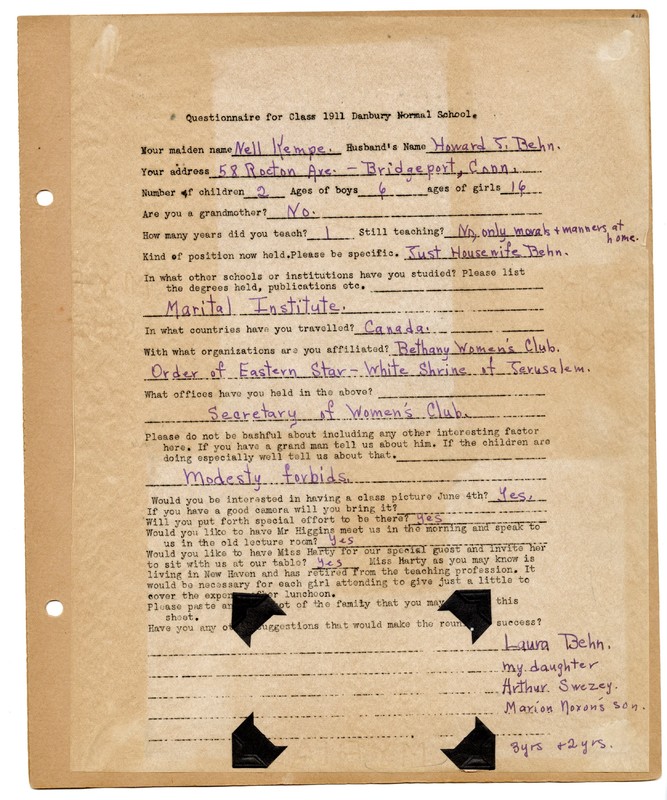 Questionnaire for Class 1911 Danbury Normal School.
Your maiden name Nell Kempe. Husband's Name Howard S. Behn.
Your address 58 Rocton Ave. - Bridgeport, Conn.
Number of children 2 Ages of boys 6 ages of girls 16
Are you a grandmother? No.
How many years did you teach? 1 Still teaching? No, only morals + manners at home.
Kind of position now held. Please be specific. Just Housewife Behn.
In what other schools or institutions have you studied? Please list
the degrees held, publications etc.
Marital Institute.
In what countries have you travelled? Canada.
With what organizations are you affiliated? Bethany Women's Club.
Order of Eastern Star - White Shrine of Jerusalem.
What offices have you held in the above?
Secretary of Women's Club.
Please do not be bashful about including any other interesting factor
here. If you have a grand man tell us about him. If the children are
doing especially well tell us about that.
Modesty forbids.
Would you be interested in having a class picture June 4th? Yes.
If you have a good camera will you bring it?
Will you put forth special effort to be there? yes
Would you like to have Mr Higgins meet us in the morning and speak to
us in the old lecture room? Yes
Would you like to have Miss Harty for our special guest and invite her
to sit with us at our table? Yes Miss Harty as you may know is
living in New Haven and has retired from the teaching profession. It
would be necessary for each girl attending to give just a little to
cover the luncheon.
Please paste of the family that you may this
sheet.
Have you any suggestions that would make the success?
Laura Behn.
my daughter
Arthur Swezey.
Marion Noxon's son.
3yrs + 2yrs.